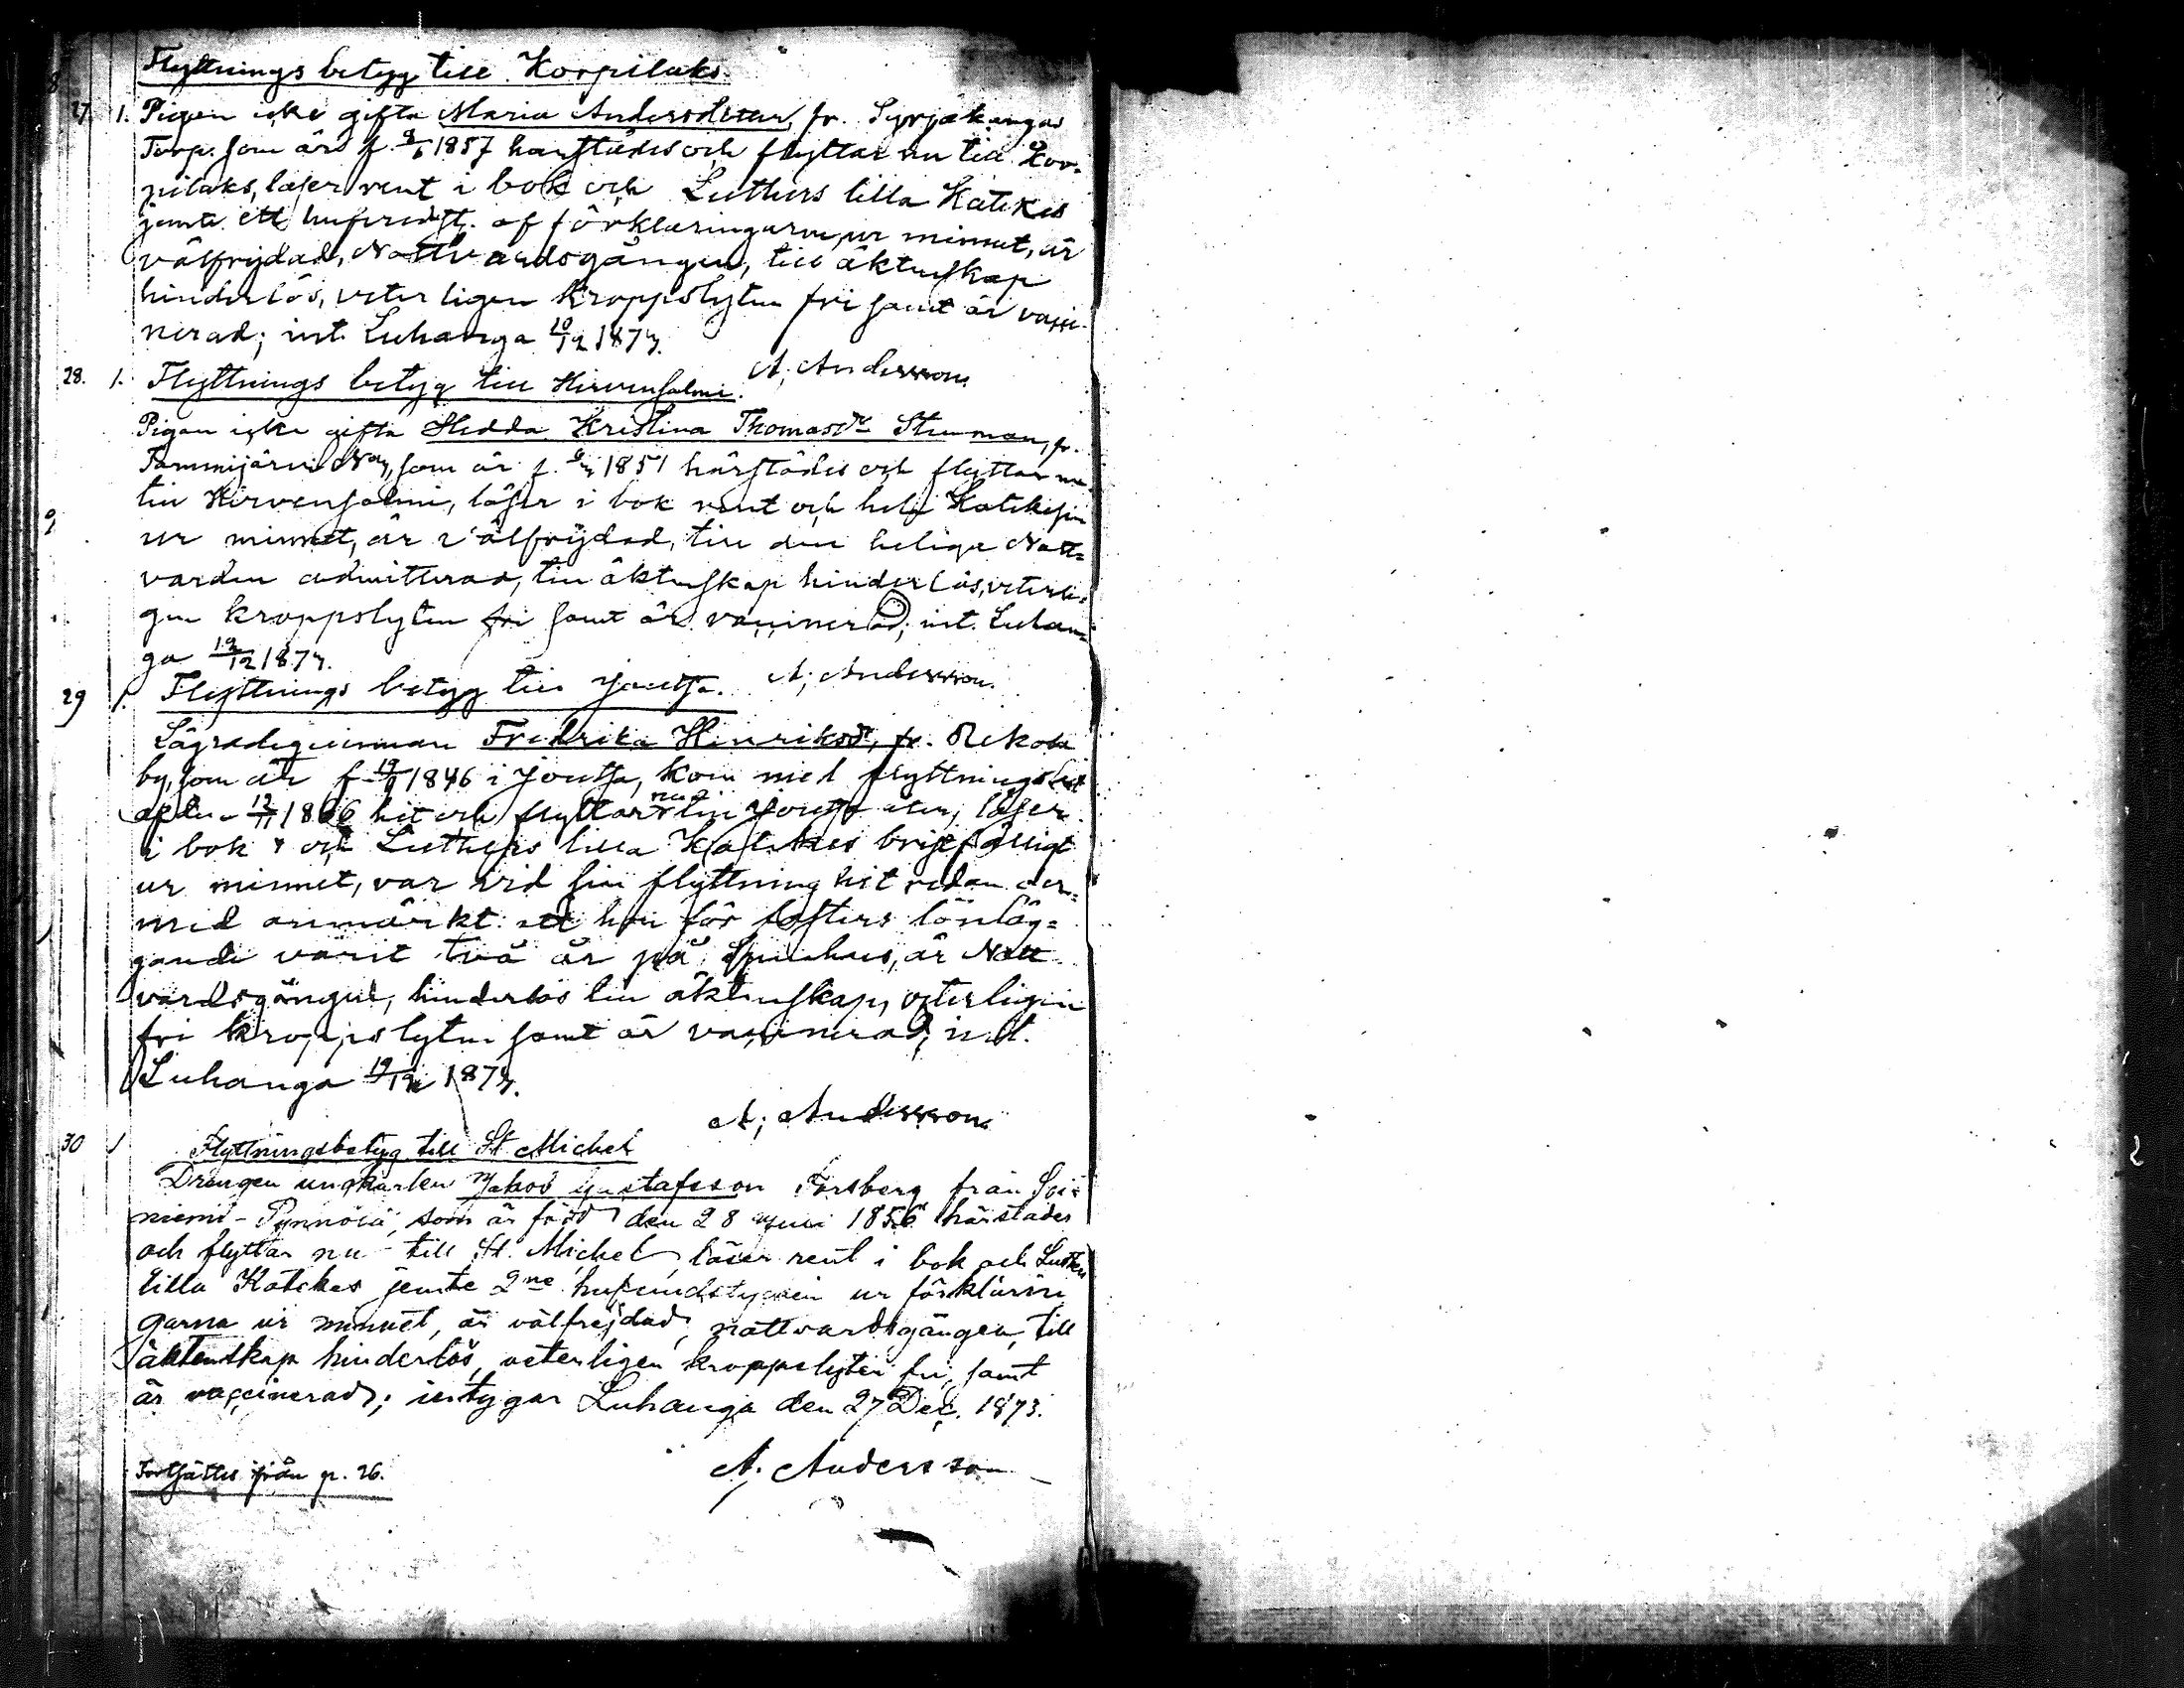 Flyttnings betyg till Korpilaks.
27. 1. Pigan icke gifta Maria Andersdotter, fr. Syrjäkangas
Torp. som är f. 9/6 1857 härstädes och flyttar nu till Kor-
pilaks, läser rent i bok och Luthers lilla Katekes
jemte ett hufvudst. af förklaringarne ur minnet, är
välfrejdad, Nattvardsgången, till äktenskap
hinderlös, veterligen kroppslyten fri samt är vacci-
nerad; int. Luhanga 10/12 1873.
A; Andersson.
28. 1. Flyttnings betyg till Hirvensalmi.
Pigan icke gifta Hedda Kristina Thomasdr Stenman, fr.
Tammijärvi som är f. 1851 härstädes och flyttar nu
till Hirvensalmi, läser i bok rent och hela Katekesen
ur minnet, är välfrejdad, till den heliga Natt-
varden admitterad, till äktenskap hinderlös, veterli-
gen kroppslyten fri samt är vaccinerad; int. Luhan-
ga 19/12 1873.
A; Andersson.
29 1. Flyttnings betyg till Joutsa.
Lägradeqvinnan Fredrika Hinriksdr, fr.
by, som är f. 1846 i Joutsa, kom med flyttningsbet
af den 12/11 1866 hit och flyttar nu till Joutsa åter, läser
i bok och Luthers lilla Katekes bristfälligt
ur minnet, var vid sin flyttning hit redan der-
med anmärkt att hon för fosters lönläg-
gande varit två år på Spinhus, är Natt-
vardsgången, hinderlös till äktenskap, veterligen
fri kroppslyten samt är vaccinerad; int.
Luhanga 19/12 1873.
A; Andersson
30 1 Flyttningsbetyg till St Michel
Drängen ungkarlen Jakob Gustafsson Forsberg från
niemi - Pynnölä, som är född den 28 Juni 1856 härstädes
och flyttar nu till St. Michel, läser rent i bok och Luthers
lilla Katekes jemte 2ne hufvudstycken ur förklarin
garna ur minnet, är välfrejdad, nattvardsgången, till
äktenskap hinderlös, veterligen kroppslyten fri, samt
är vaccinerad; intygar Luhanga den 27 Dec. 1873.
A; Andersson
Fortsättes från p. 26.